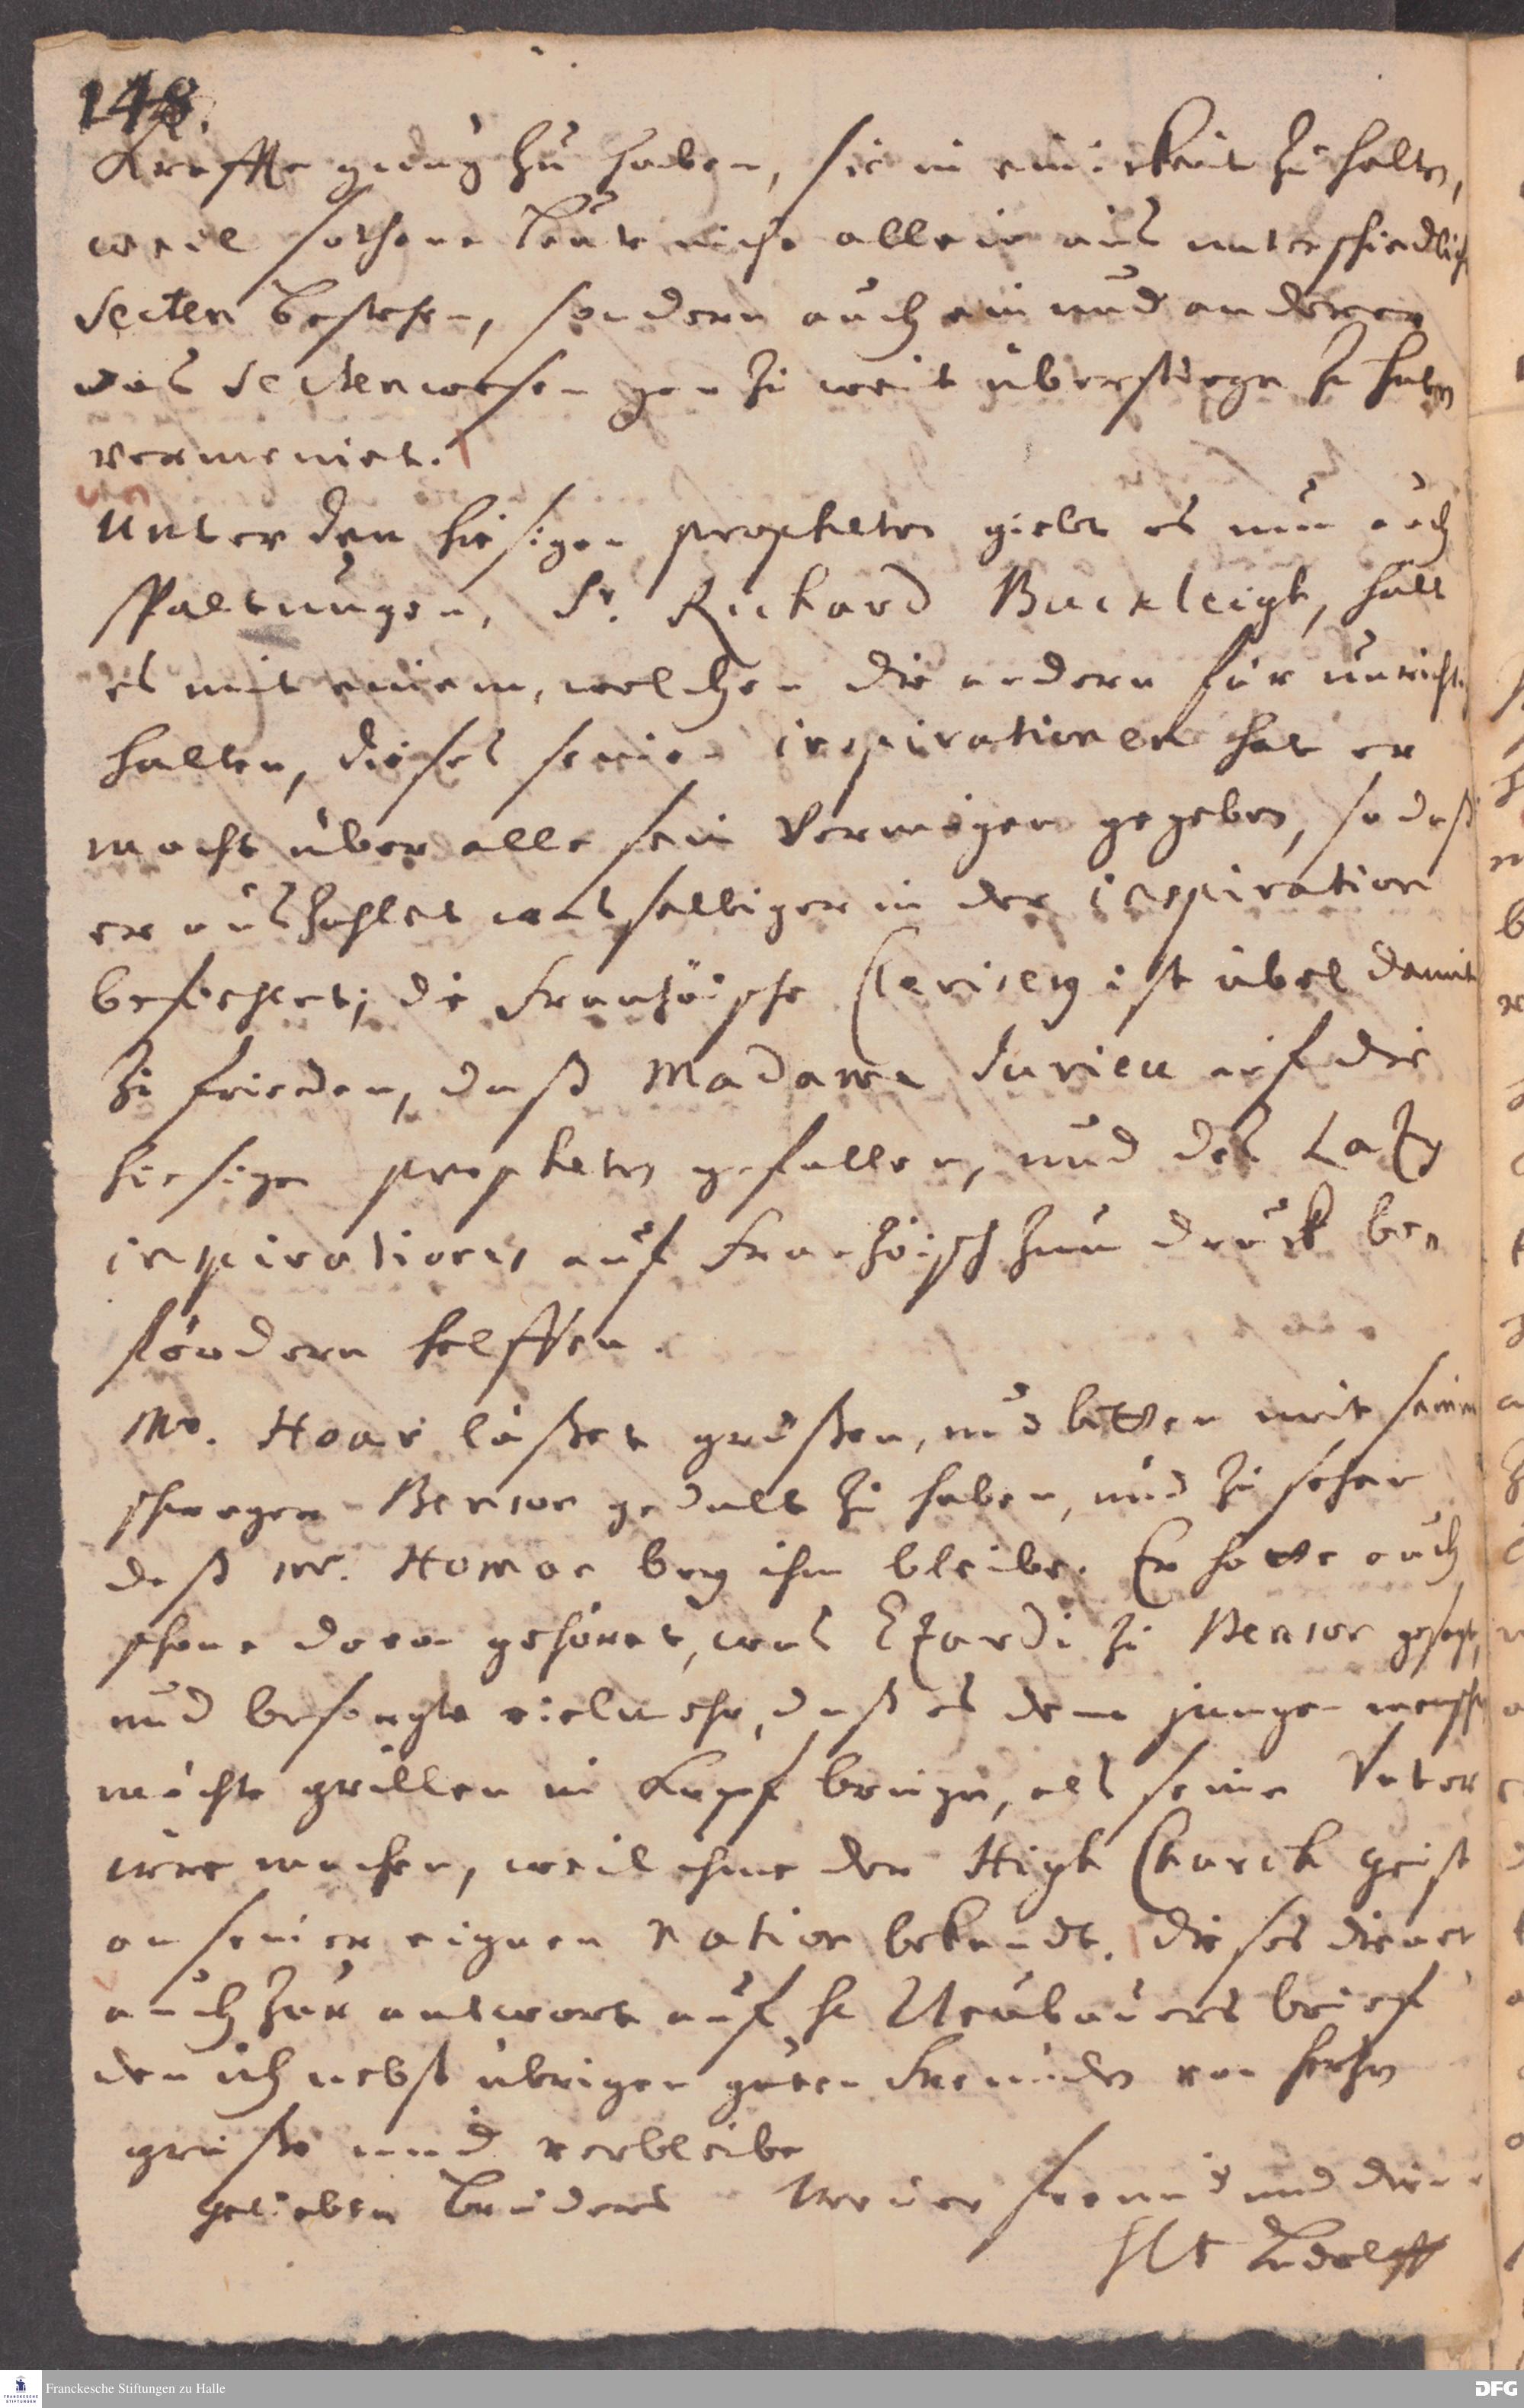 148.
Kraffte genug zu haben, sie in einickeit zu halten,
weil sothane Leute nicht allein aus unterschiedlichen
Secten bestehen, sondern auch ein und anderer
das Sectenwesen gar zu weit überstiegen zu haben
vermeinet.
Unter den hiesigen propheten giebt es nun auch
spaltungen, Sr. Richard Buckleigh, hält
es mit einem, welchen die andern für unrichtig
halten, dieses seinen inspirationen hat er
macht über alle sein Vermögen gegeben, so daß
er auszahlet was selbiger in der inspiration
befiehlet; die Frantzöische Clerisey ist übel damit
zu frieden, daß Madame Jurieu auf die
hiesigen propheten gefallen, und des Lacy
inspirationes auf Frantzöisch zum druck be-
föördern helffen.
Mr. Hoar läßet grüßen, und bitten mit seinem
schwager Benson gedult zu haben, und zu sehen
daß Mr. Homan bey ihm bleibe. Er hatte auch
schone davon gehöret, was Ezardi zu Benson gesagt,
und besorgte vielmehr, daß es dem jungen menschen
möchte grillen in Kopf bringen, als seine Vater
irre machen, weil ihme der High Church geist
an seiner eignen nation bekandt. Dieses dienet
auch zur antwort auf H Neubauers brief
den ich nebst übrigen guten Freunden von hertzen
grüße und verbleibe
Geliebten Bruders treuer freund und diener
HW Ludolff
Franckesche Stiftungen zu Halle
DFG